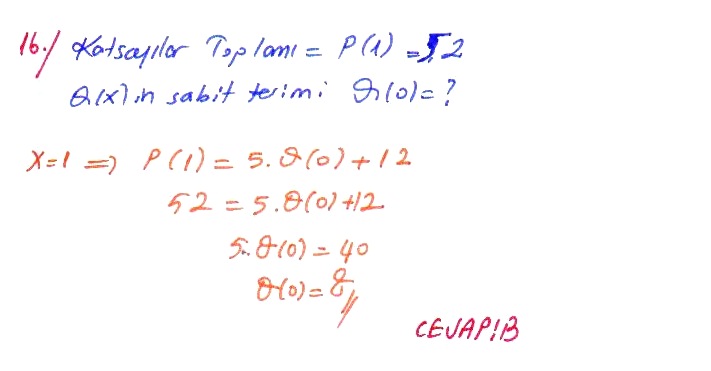 16./ Katsayılar Toplamı = P(1) = 52
Q(x) in sabit terimi Q(0) = ?
x=1 => P(1) = 5.Q(0) + 12
52 = 5.Q(0) + 12
5.Q(0) = 40
Q(0) = 8//
CEVAP:B